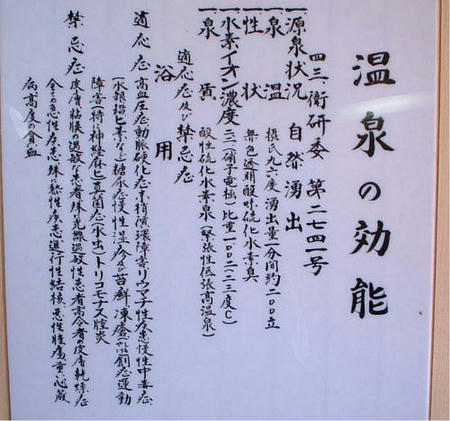 温泉の効能
四三、衛研委 第二七四一号
一、源泉状況 自然湧出
一、泉温 摂氏九六度 湧出量一分間約二〇〇立
一、性状 無色透明酸味硫化水素臭
一、水素イオン濃度 (硝子電極)比重一.〇〇二(二三度C)
一、泉質 酸性硫化水素泉(緊張性低張高温泉)
適応症及び禁忌症
浴用
適応症 高血圧症動脈硬化症末梢循環障害リウマチ性疾患慢性中毒症
(水銀鉛ヒ素など)糖尿病慢性湿疹及び苔癬凍瘡 創症運動
障害(特に神経麻ヒ)真菌症(水虫)トリコモナス腟炎
禁忌症 皮膚粘膜の過敏な患者殊に光線過敏性患者高令者の皮膚乾燥症
全ての急性疾患殊に熱性疾患進行性結核、悪性腫瘍、重い心臓
病高度の貧血